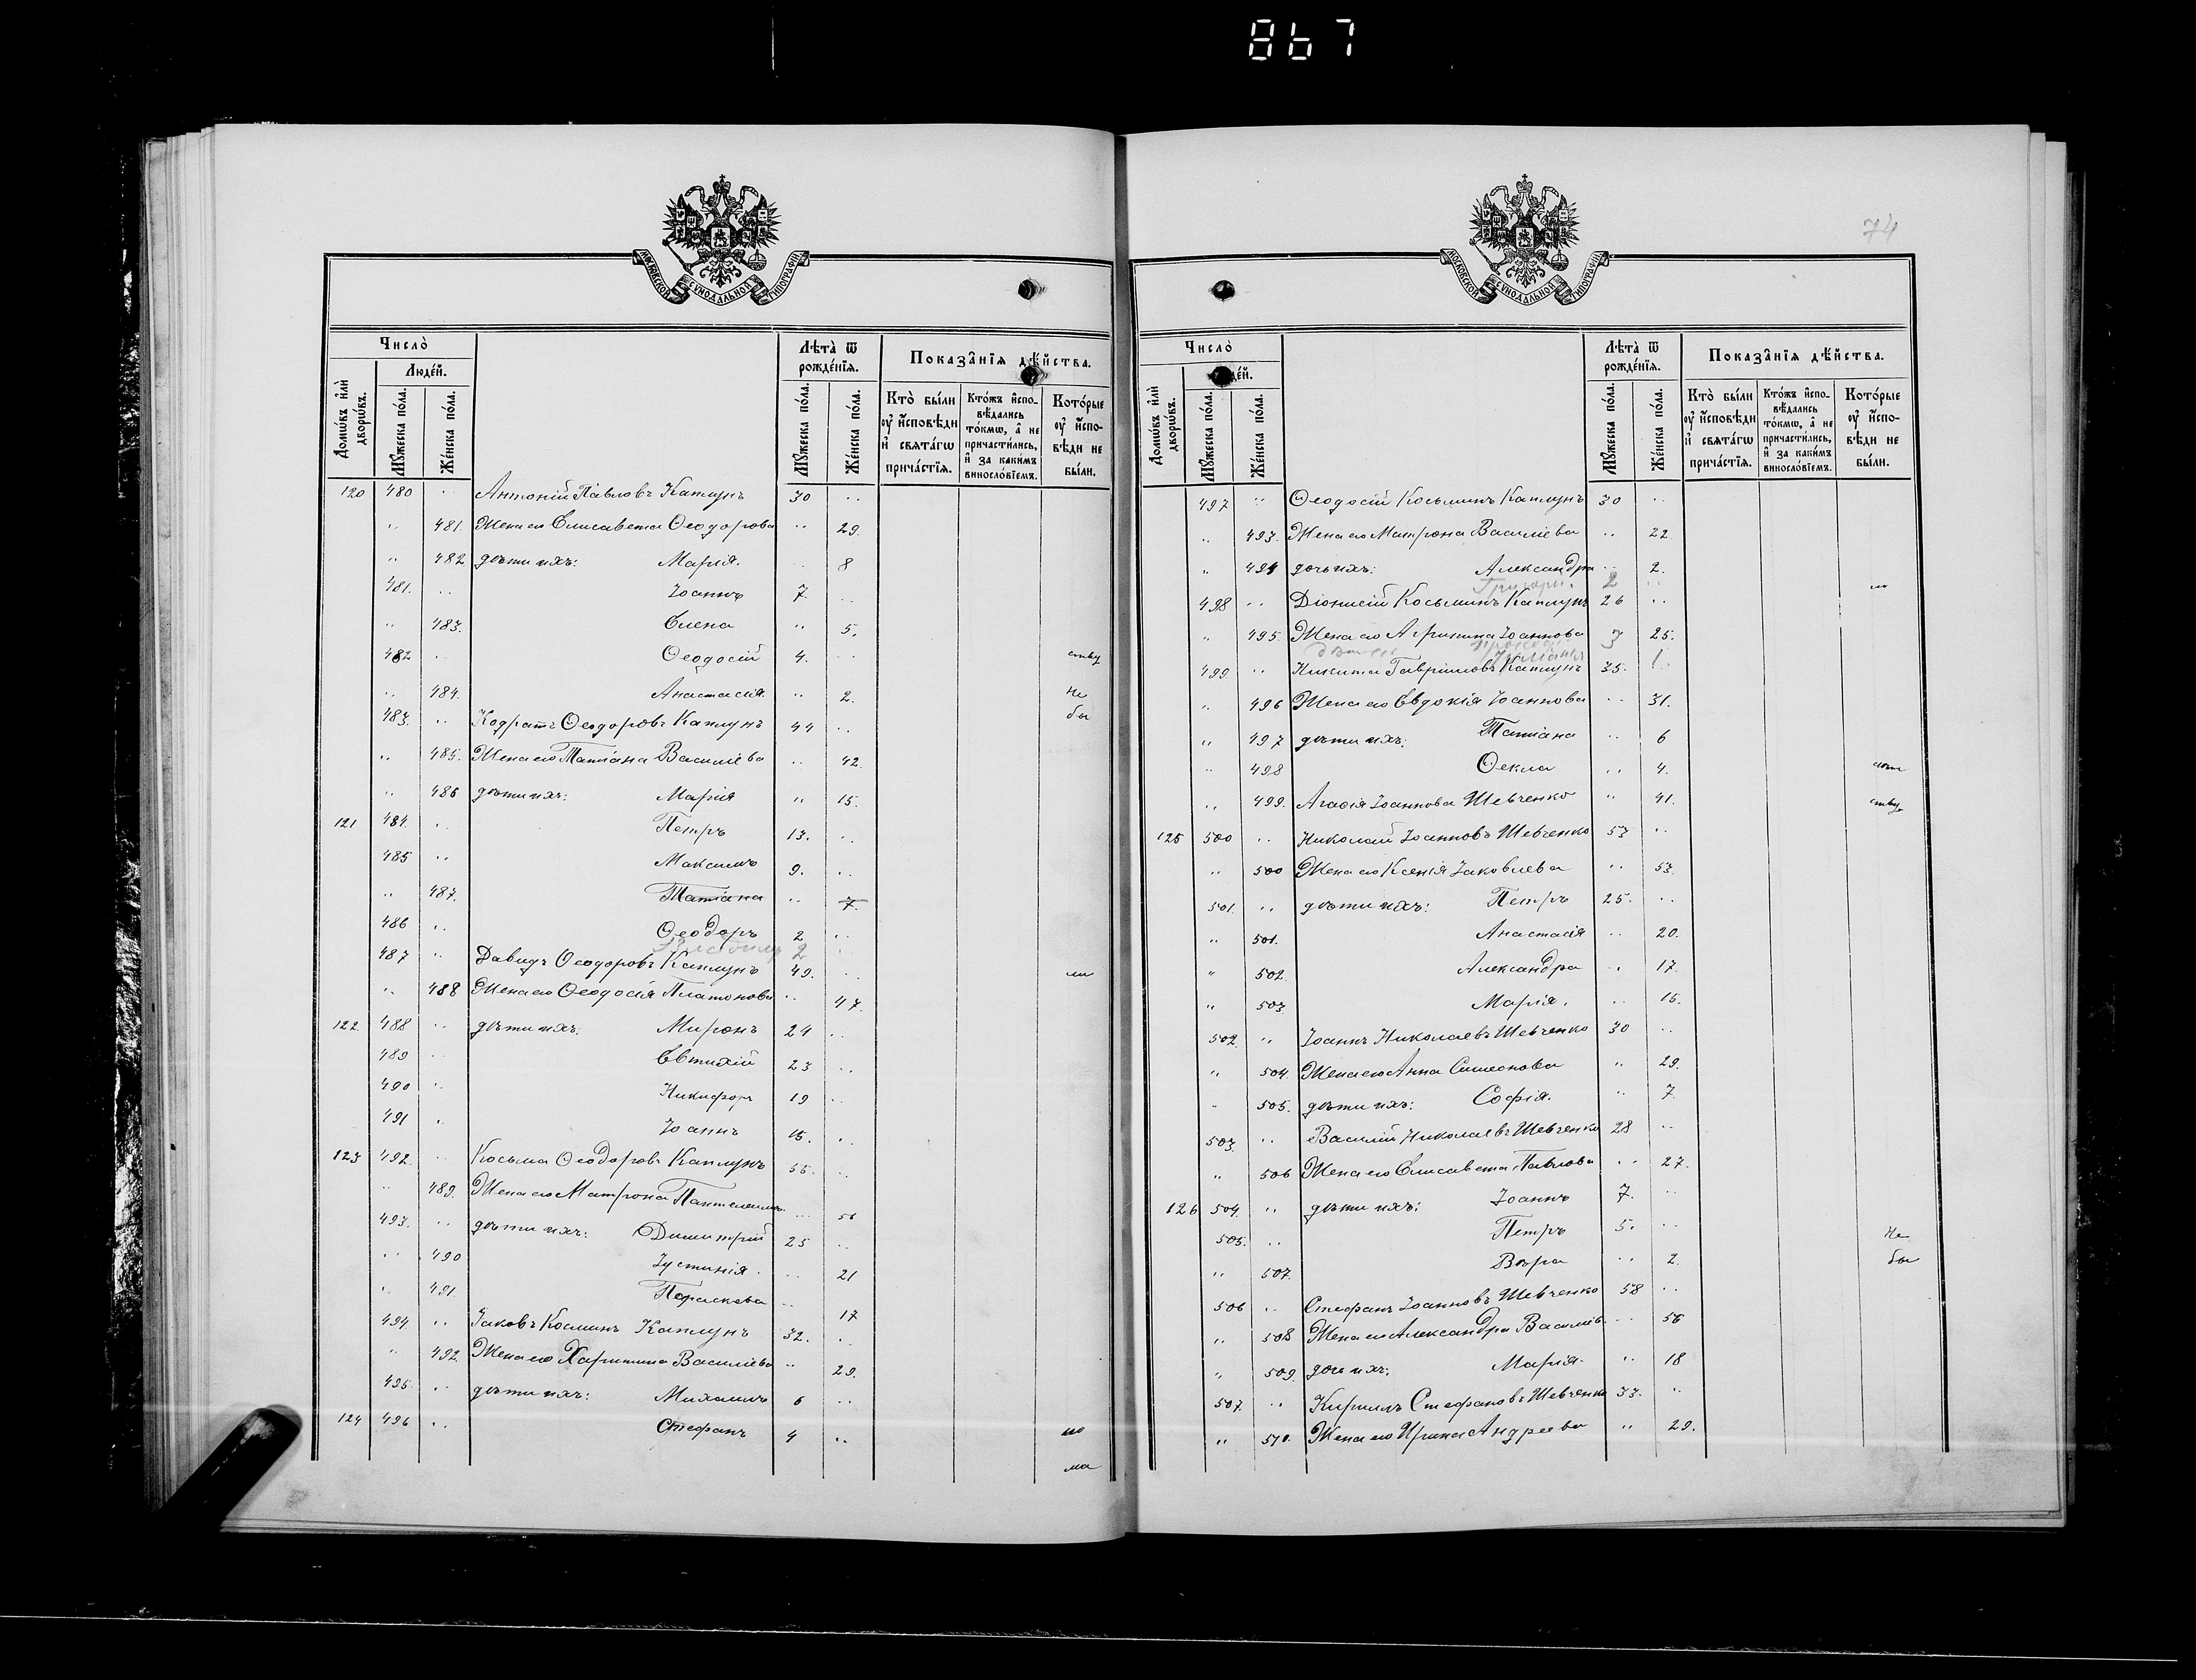 867
МОСКОВСКОЙ СѴНОДАЛЬНОЙ ТИПОГРАФІИ
Число̀
Домѡ́въ и҆лѝ дворѡ́въ.
Люде́й.
Мꙋ́жеска по́ла.
Же́нска по́ла.
Лѣ́та ѿ рожде́нїѧ.
Мꙋ́жеска по́ла.
Же́нска по́ла.
Показа̑нїѧ дѣ́йства.
Кто̀ бы́ли ᲂу҆ и҆́сповѣди и҆ свѧта́гѡ прича́стїѧ.
Кто́жъ и҆спо-вѣ́дались то́кмѡ, а҆ не причасти́лись, и҆ за каки́мъ виносло́вїемъ.
Кото́рые ᲂу҆ и҆́спо-вѣди не бы́ли.
120 480 .. Антоній Павловъ Каплунъ 30 ..
.. 481. Жена его Елисавета Ѳеодорова .. 29.
.. 482 дѣти ихъ: Марія. .. 8
481. .. Іоаннъ 7. ..
.. 483. Елена .. 5.
482 .. Ѳеодосій 4. ..
.. 484. Анастасія .. 2.
Не
бы
483. .. Кодратъ Ѳеодоровъ Каплунъ 44 ..
.. 485. Жена его Татіана Василіева .. 42.
.. 486 дѣти ихъ: Марія .. 15.
121 484. .. Петръ 13. ..
485 .. Максимъ 9. ..
.. 487. Татіана .. 7.
486 .. Ѳеодоръ 2 ..
2
487 .. Давидъ Ѳеодоровъ Каплунъ 49. ..
ли
.. 488 Жена его Ѳеодосія Платонова .. 47.
122. 488 .. дѣти ихъ: Миронъ 24 ..
489 .. Евтихій 23 ..
490 .. Никифоръ 19 ..
491 .. Іоаннъ 15. ..
123 492. .. Косьма Ѳеодоровъ Каплунъ 55. ..
.. 489. Жена его Матрона Пантелеим. ..
493. .. дѣти ихъ: Димитрій 25 ..
.. 490 Іустинія. .. 21
.. 491 Параскева .. 17
494 .. Іаковъ Косминъ Каплунъ 32. ..
.. 492. Жена его Харитина Василіева .. 29.
495. .. дѣти ихъ: Михаилъ 6 ..
124 496 .. Стефанъ 4 ..
74
МОСКОВСКОЙ СѴНОДАЛЬНОЙ ТИПОГРАФІИ
Число̀
Домѡ́въ и҆лѝ дворѡ́въ.
Мꙋ́жеска по́ла.
Же́нска по́ла.
Лѣ́та ѿ рожде́нїѧ.
Мꙋ́жеска по́ла.
Же́нска по́ла.
Показа̑нїѧ дѣ́йства.
Кто̀ бы́ли ᲂу҆ и҆́сповѣди и҆ свѧта́гѡ прича́стїѧ.
Кто́жъ и҆спо-вѣ́дались то́кмѡ, а҆ не причасти́лись, и҆ за каки́мъ виносло́вїемъ.
Кото́рые ᲂу҆ и҆́спо-вѣди не бы́ли.
497 .. Ѳеодосій Косьминъ Каплунъ 30 ..
.. 493. Жена его Матрона Василіева .. 22.
.. 494 дочь ихъ: Александра .. 2.
Григорій 2
498 .. Діонисій Косьминъ Каплунъ 26 ..
.. 495. Жена его Агрипина Іоаннова .. 25.
3
499. .. Никита Гавріиловъ Каплунъ 35. ..
.. 496 Жена его Евдокія Іоаннова .. 31.
.. 497 дѣти ихъ: Татіана .. 6
.. 498 Ѳекла .. 4.
.. 499. Агаѳія Іоаннова Шевченко .. 41.
125 500 .. Николай Іоанновъ Шевченко 53 ..
.. 500 Жена его Ксенія Іаковлева .. 53.
501. .. дѣти ихъ: Петръ 25. ..
.. 501. Анастасія .. 20.
.. 502 Александра .. 17.
.. 503 Марія. .. 15.
502. .. Іоаннъ Николаевъ Шевченко 30 ..
.. 504. Жена его Анна Симеонова .. 29.
.. 505. дѣти ихъ: Софія. .. 7.
503. .. Василій Николаевъ Шевченко 28 ..
.. 506 Жена его Елисавета Павлова .. 27.
126 504. .. дѣти ихъ: Іоаннъ 7. ..
505. .. Петръ 5. ..
Не
.. 507. Вѣра .. 2.
бы
506 .. Стефанъ Іоанновъ Шевченко 58 ..
.. 508 Жена его Александра Василіев. .. 56
.. 509. дочь ихъ: Марія. .. 18
507. .. Кириллъ Стефановъ Шевченко 33. ..
.. 510. Жена его Ирина Андреева .. 29.